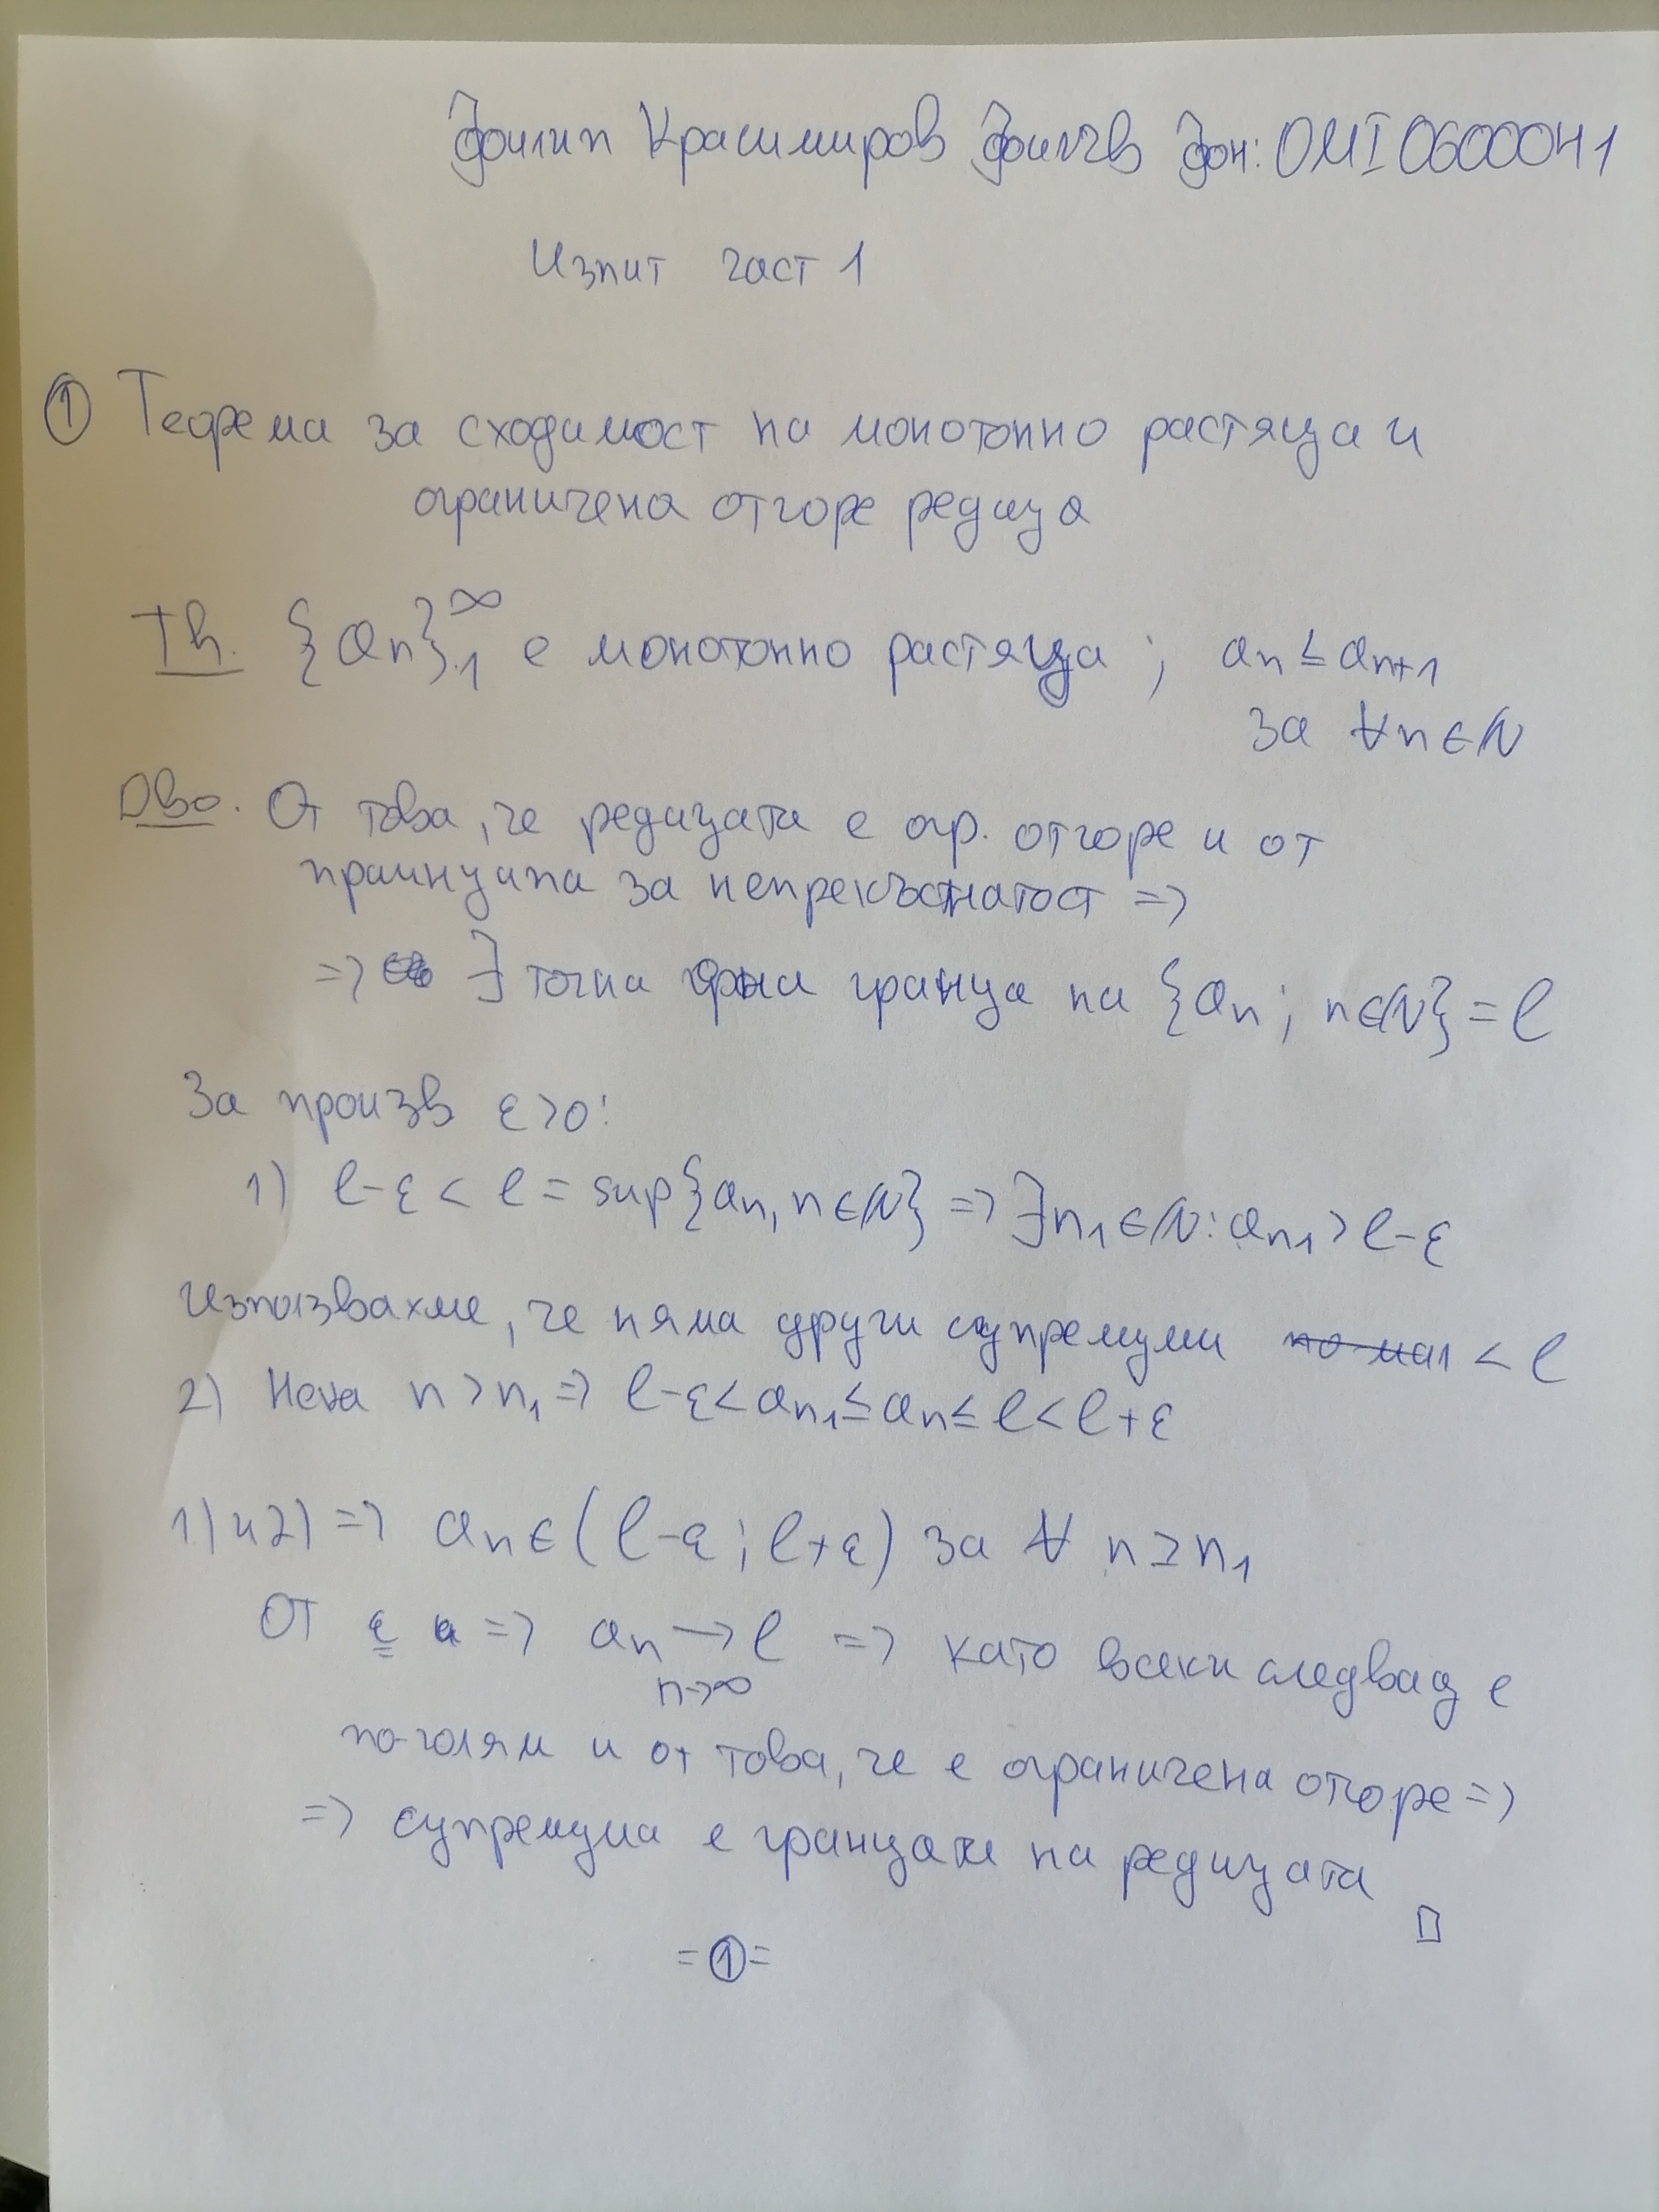 Филип Красимиров Филчев Фон: 0MI0600041
Изпит част 1
① Теорема за сходимост на монотонно растяща и
ограничена отгоре редица
Th. {an}₁^∞ е монотонно растяща ; an ≤ an+1
за ∀n∈ℕ
Дво. От това, че редицата е огр. отгоре и от
принципа за непрекъснатост =>
=> ∃ точна горна граница на {an; n∈ℕ} = l
За произв ε>0:
1) l-ε < l = sup{an, n∈ℕ} => ∃n₁∈ℕ: an₁ > l-ε
Използвахме, че няма други супремуми < l
2) Нека n > n₁ => l-ε < an₁ ≤ an ≤ l < l+ε
1) и 2) => an ∈ (l-ε; l+ε) за ∀ n ≥ n₁
От ε => an → l => като всеки следващ е
n→∞
по-голям и от това, че е ограничена отгоре =>
=> супремума е границата на редицата □
=①=